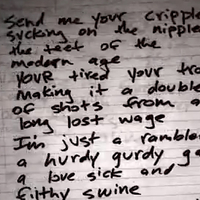 Send me your cripple
sucking on the nipple
the teet of the
modern age
your tired your tro
making it a double
of shots from a
long lost wage
I'm just a rambler
a hurdy gurdy ga
a love sick and
filthy swine